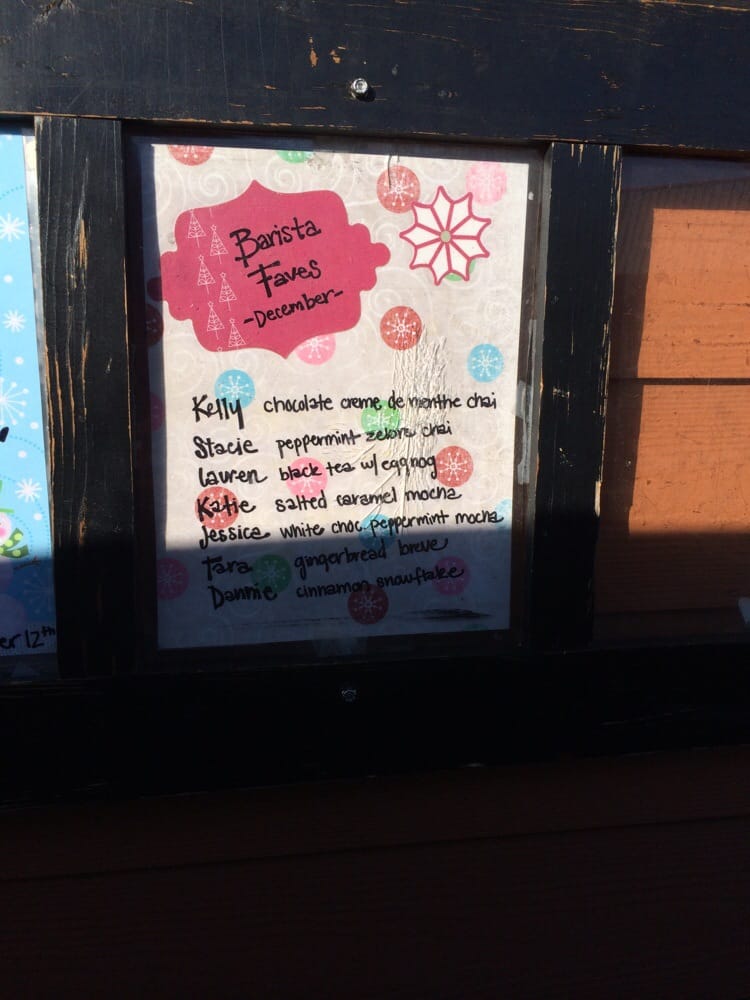 Barista
Faves
-December-
Kelly chocolate creme de menthe chai
Stacie peppermint zebra chai
Lauren black tea w/ eggnog
Katie salted caramel mocha
Jessica white choc. peppermint mocha
Tara gingerbread breve
Dannie cinnamon snowflake
er 12th